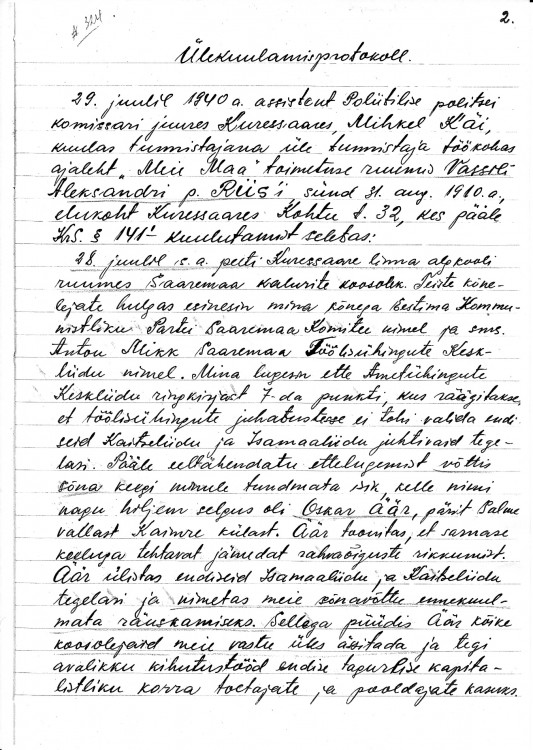 # 324
2.
Ülekuulamisprotokoll.
29. juulil 1940 a. assistent Poliitilise politsei
komissari juures Kuressaares, Mihkel Käi,
kuulas tunnistajana üle tunnistaja töökohas
ajaleht „Meie Maa" toimetuse ruumid Vassili
Aleksandri p. Riis'i sünd 31. aug. 1910.a.,
elukoht Kuressaares Kohtu t. 32, kes pääle
KrS. § 141¹ kuulutamist seletas:
28. juulil s.a. peeti Kuressaare linna algkooli
ruumes Saaremaa kalurite koosolek. Teiste kõne-
lejate hulgas esinesin mina kõnega Eestima Kommu-
nistliku Partei Saaremaa Komitee nimel ja sms.
Anton Mikk Saaremaa Töölisühingute Kesk-
liidu nimel. Mina lugesin ette Ametiühingute
Keskliidu ringkirjast 7-da punkti, kus räägitakse,
et töölisühingute juhatustesse ei tohi valida endi-
seid Kaitseliidu ja Isamaaliidu juhtivaid tege-
lasi. Pääle eeltähendatu ettelugemist võttis
sõna keegi minule tundmata isik, kelle nimi
nagu hiljem selgus oli Oskar Äär, pärit Salme
vallast Kaimre külast. Äär toonitas, et sarnase
keeluga tehtavat jämedat rahvaõiguste rikkumist.
Äär ülistas endiseid Isamaaliidu ja Kaitseliidu
tegelasi ja nimetas meie sõnavõttu ennekuul-
mata räuskamiseks. Sellega püüdis Äär kõike
koosolejaid meie vastu üles ässitada ja tegi
avalikku kihutustööd endise tagurlise kapita-
listliku korra toetajate ja pooldajate kasuks.